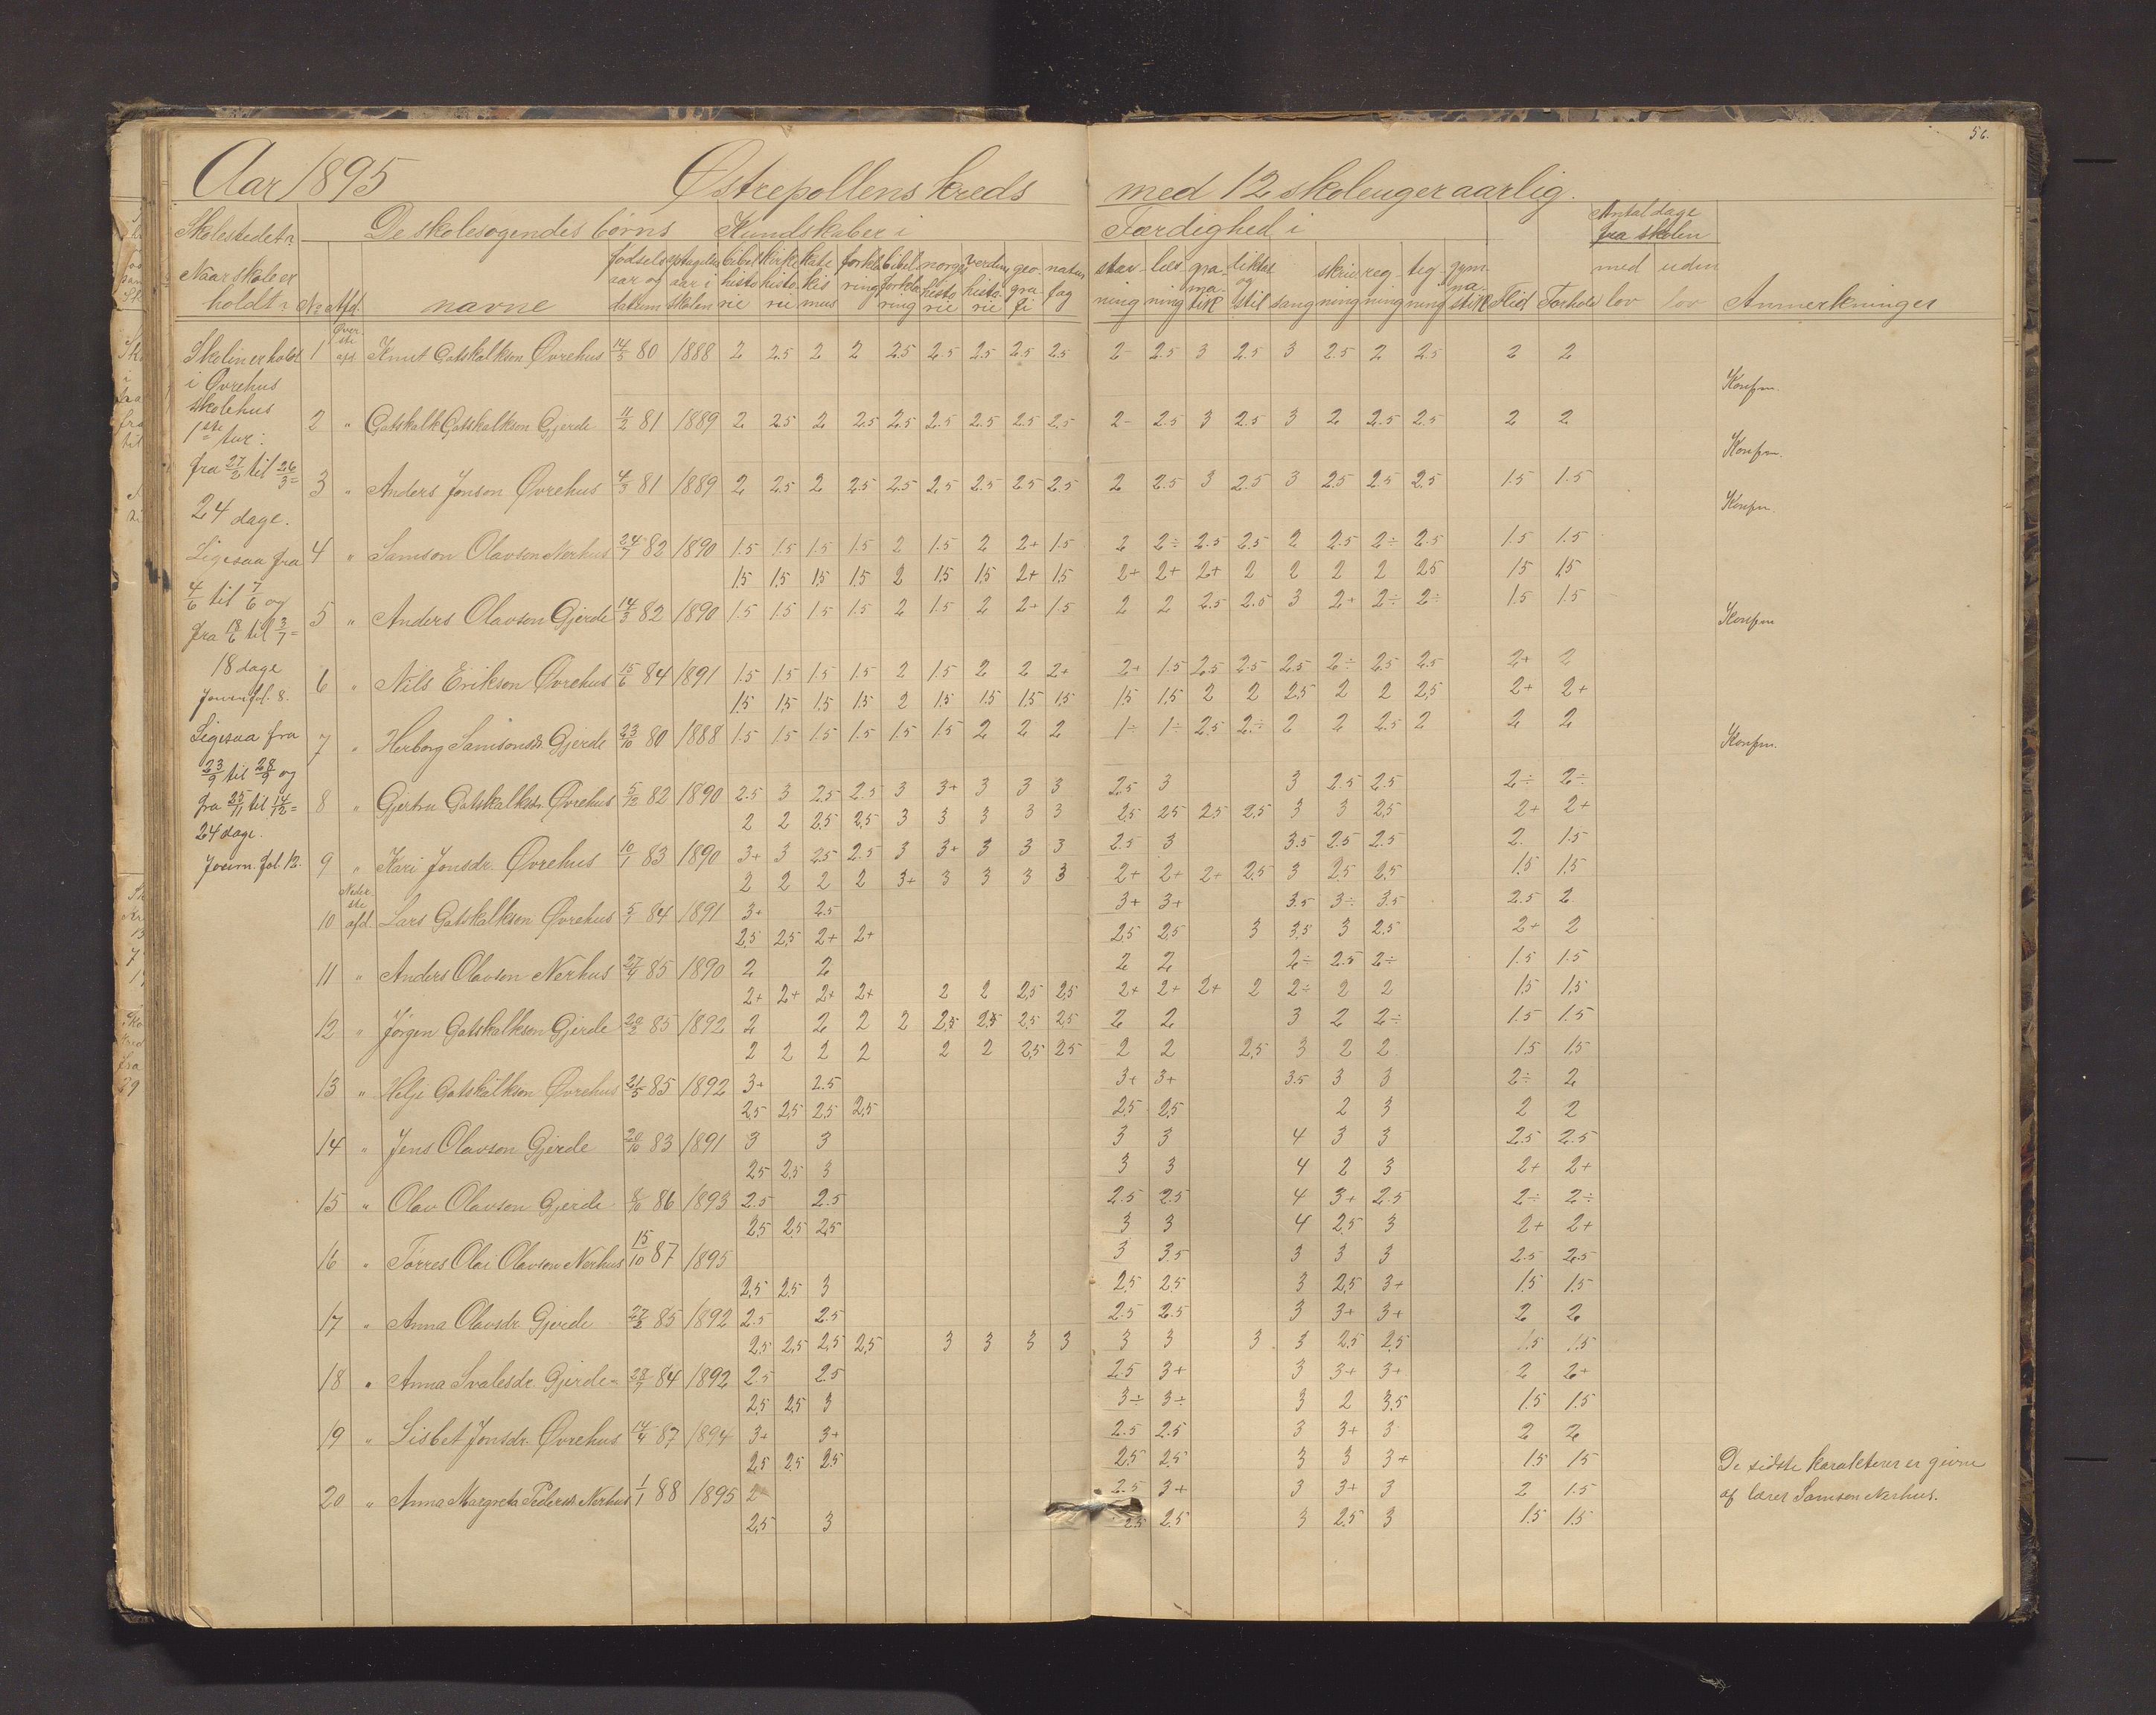 56.
Aar 1895 Østrepollens kreds med 12 skoleuger aarlig.
Skolestedet? De skolesøgendes børns Kundskaber i Færdighed i Antal dage fra skolen
Naar skole er holdt? No Afd. navne fødsels aar og datum optagelses aar i skolen bibel historie kirke historie kate kismus forklaring bibel forklaring norges historie verdens historie geografi naturfag stavning læsning gramatik diktat og stil sang skrivning regning tegning gymnastik Flid Forhold med lov uden lov Anmerkninger
Skolen er holdt
i Øvrehus
skolehus
1ste tur:
fra 27/2 til 26/3 =
24 dage.
Ligesaa fra
4/6 til 7/6 og
fra 18/6 til 3/7 =
18 dage
Journ. fol. 8.
Ligesaa fra
23/9 til 28/9 og
fra 25/11 til 14/12 =
24 dage.
Journ. fol. 12.
1 Øverste afd Knut Gotskalkson Øvrehus 14/5 80 1888 2 2.5 2 2 2.5 2.5 2.5 2.5 2.5 2- 2.5 3 2.5 3 2.5 2 2.5 2 2
Konfm.
2 " Gotskalk Gotskalkson Gjerde 11/2 81 1889 2 2.5 2 2.5 2.5 2.5 2.5 2.5 2.5 2- 2.5 3 2.5 3 2 2.5 2.5 2 2
Konfm.
3 " Anders Jonson Øvrehus 4/3 81 1889 2 2.5 2 2.5 2.5 2.5 2.5 2.5 2.5 2 2.5 3 2.5 3 2.5 2.5 2.5 1.5 1.5
Konfm.
4 " Samson Olavson Nerhus 24/7 82 1890 1.5 1.5 1.5 1.5 2 1.5 2 2+ 1.5 2 2÷ 2.5 2.5 2 2.5 2÷ 2.5 1.5 1.5
1.5 1.5 1.5 1.5 2 1.5 1.5 2+ 1.5 2+ 2+ 2+ 2 2 2 2 2.5 1.5 1.5
5 " Anders Olavson Gjerde 14/3 82 1890 1.5 1.5 1.5 1.5 2 1.5 2 2+ 1.5 2 2 2.5 2.5 3 2+ 2÷ 2÷ 1.5 1.5
Konfm
6 " Nils Erikson Øvrehus 15/6 84 1891 1.5 1.5 1.5 1.5 2 1.5 2 2 2+ 2+ 1.5 2.5 2.5 2.5 2÷ 2.5 2.5 2+ 2
1.5 1.5 1.5 1.5 2 1.5 1.5 1.5 1.5 1.5 1.5 2 2 2.5 2 2 2.5 2+ 2+
7 " Herborg Samsonsdr. Gjerde 23/10 80 1888 1.5 1.5 1.5 1.5 1.5 1.5 2 2 2 1÷ 1÷ 2.5 2÷ 2 2 2.5 2 2 2
Konfm.
8 " Gjertru Gotskalksdr. Øvrehus 5/12 82 1890 2.5 3 2.5 2.5 3 3+ 3 3 3 2.5 3 3 2.5 2.5 2÷ 2÷
2 2 2.5 2.5 3 3 3 3 3 2.5 2.5 2.5 2.5 3 3 2.5 2+ 2+
9 " Kari Jonsdr. Øvrehus 10/1 83 1890 3+ 3 2.5 2.5 3 3+ 3 3 3 2.5 3 3.5 2.5 2.5 2. 1.5
2 2 2 2 3+ 3 3 3 3 2+ 2+ 2+ 2.5 3 2.5 2.5 1.5 1.5
10 Nederste afd. Lars Gotskalkson Øvrehus 5/1 84 1891 3+ 2.5 3+ 3+ 3.5 3÷ 3.5 2.5 2
2.5 2.5 2+ 2+ 2.5 2.5 3 3.5 3 2.5 2+ 2
11 " Anders Olavson Nerhus 27/4 85 1890 2 2 2 2 2÷ 2.5 2÷ 1.5 1.5
2+ 2+ 2+ 2+ 2 2 2.5 2.5 2+ 2+ 2+ 2 2÷ 2 2 1.5 1.5
12 " Jørgen Gotskalkson Gjerde 20/2 85 1892 2 2 2 2 2.5 2.5 2.5 2.5 2 2 3 2 2÷ 1.5 1.5
2 2 2 2 2 2 2.5 2.5 2 2 2.5 3 2 2 1.5 1.5
13 " Helje Gotskalkson Øvrehus 21/5 85 1892 3+ 2.5 3+ 3+ 3.5 3 3 2÷ 2
2.5 2.5 2.5 2.5 2.5 2.5 2 3 2 2
14 " Jens Olavson Gjerde 20/10 83 1891 3 3 3 3 4 3 3 2.5 2.5
2.5 2.5 3 3 3 4 2 3 2+ 2+
15 " Olav Olavson Gjerde 8/10 86 1893 2.5 2.5 2.5 2.5 4 3+ 2.5 2÷ 2÷
2.5 2.5 2.5 3 3 4 2.5 3 2+ 2+
16 " Torres Olai Olavson Nerhus 15/10 87 1895 3 3.5 3 3 3 2.5 2.5
2.5 2.5 3 2.5 2.5 3 2.5 3+ 1.5 1.5
17 " Anna Olavsdr. Gjerde 27/2 85 1892 2.5 2.5 2.5 2.5 3 3+ 3+ 2 2
2.5 2.5 2.5 2.5 3 3 3 3 3 3 3 3 2.5 2.5 1.5 1.5
18 " Anna Svalesdr. Gjerde 28/7 84 1892 2.5 2.5 2.5 3+ 3 3+ 3+ 2 2+
2.5 2.5 3 3÷ 3÷ 3 2 3.5 1.5 1.5
19 " Lisbet Jonsdr. Øvrehus 14/4 87 1894 3+ 3+ 2.5 2.5 3 3+ 3 2 2
2.5 2.5 2.5 2.5 2.5 3 3 3+ 1.5 1.5
20 " Anna Margreta Pedersdr. Nerhus 1/1 88 1895 2 2.5 3+ 3 3+ 3 2 1.5
2.5 3 2.5 2.5 3 2.5 3 1.5 1.5
De sidste karakterer er givne
af lærer Samson Nerhus.